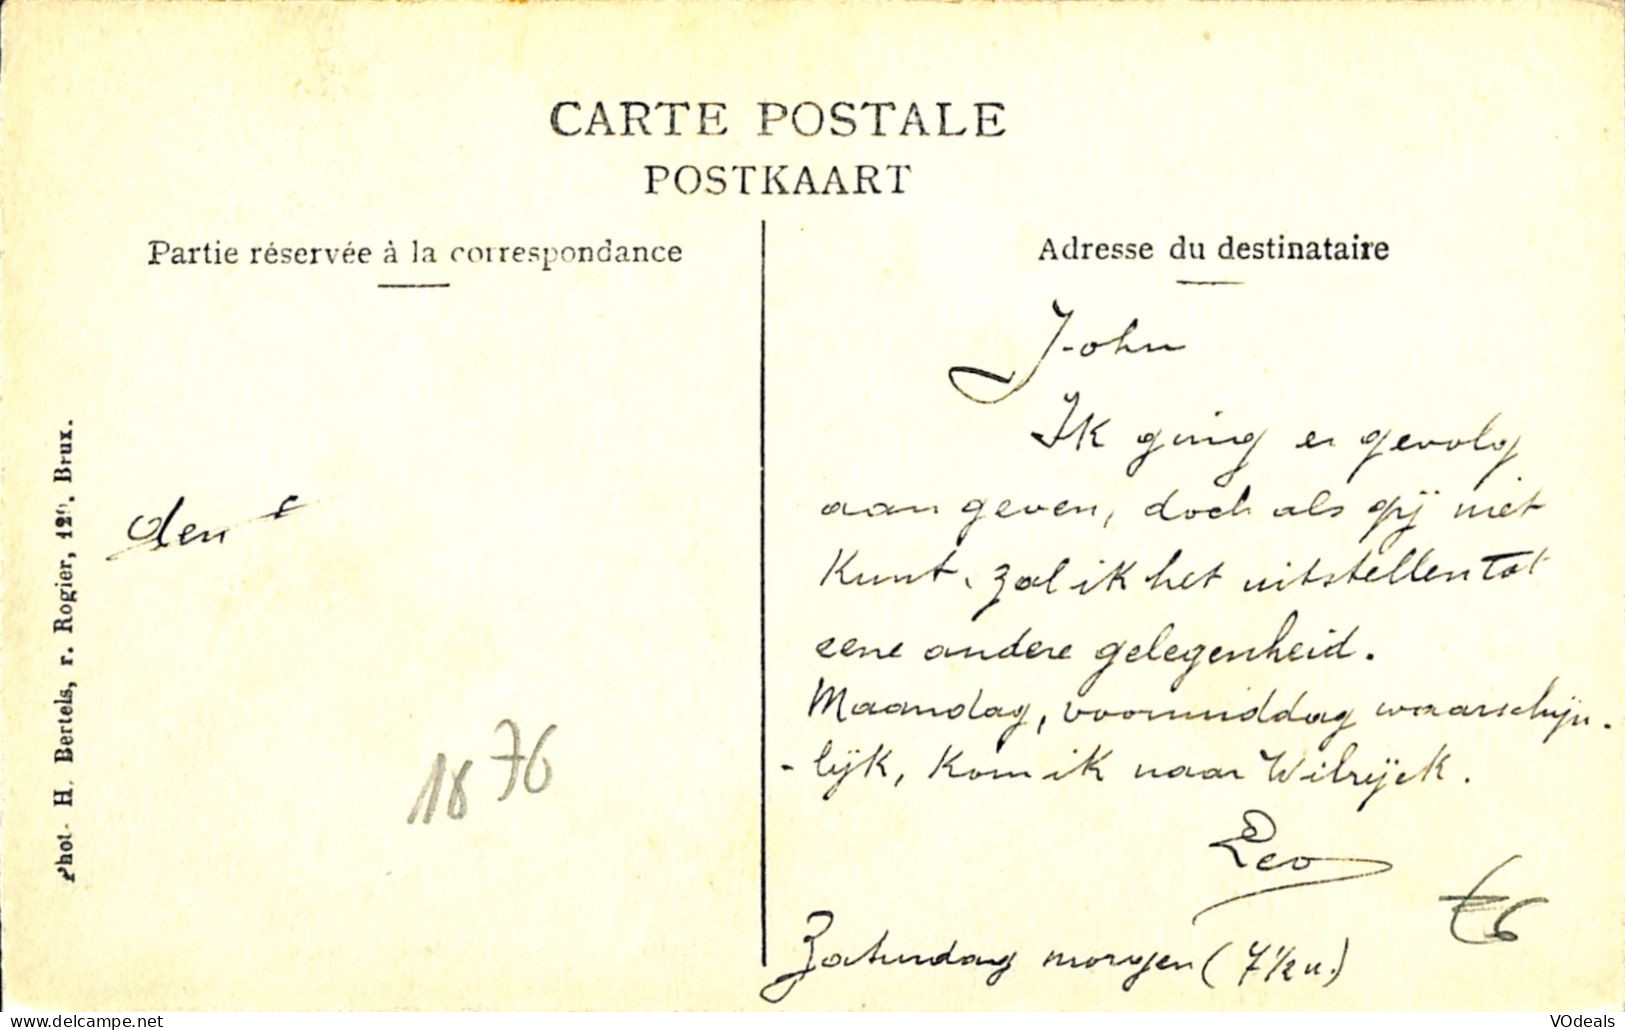 CARTE POSTALE
POSTKAART
Partie réservée à la correspondance
Adresse du destinataire
Phot. H. Bertels, r. Rogier, 129, Brux.
den
1876
John
Ik ging er gevolg
aan geven, doch als gij niet
kunt, zal ik het uitstellen tot
eene andere gelegenheid.
Maandag, voormiddag waarschijn-
-lijk, kom ik naar Wilrijck.
Leo
€6
Zaterdag morgen (7 1/2 u.)
VOdeals